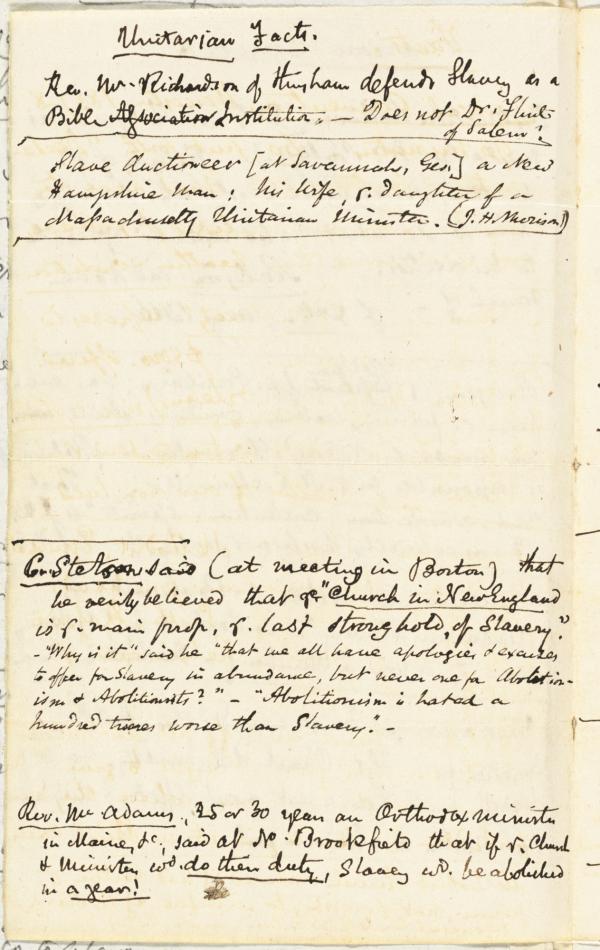 Unitarian Facts.
Rev. Mr. Richardson of Hingham defends Slavery as a
Bible Association Institution. — Does not Dr. Flint
of Salem?
Slave Auctioneer [at Savannah, Geo.] a New
Hampshire man; his wife, ye. daughter of a
Massachusetts Unitarian Minister. (J. H. Morison)
C. Stetson said (at meeting in Boston) that
he verily believed that ye. "Church in New England
is ye. main prop, ye. last stronghold, of Slavery."
- "Why is it" said he "that we all have apologies & excuses
to offer for Slavery in abundance, but never one for Abolition-
ism & Abolitionists?" - "Abolitionism is hated a
hundred times worse than Slavery." -
Rev. Mr. Adams, 25 or 30 years an Orthodox minister
in Maine, &c, said at No. Brookfield that if ye. Church
& Ministers wd. do their duty, Slavery wd. be abolished
in a year!